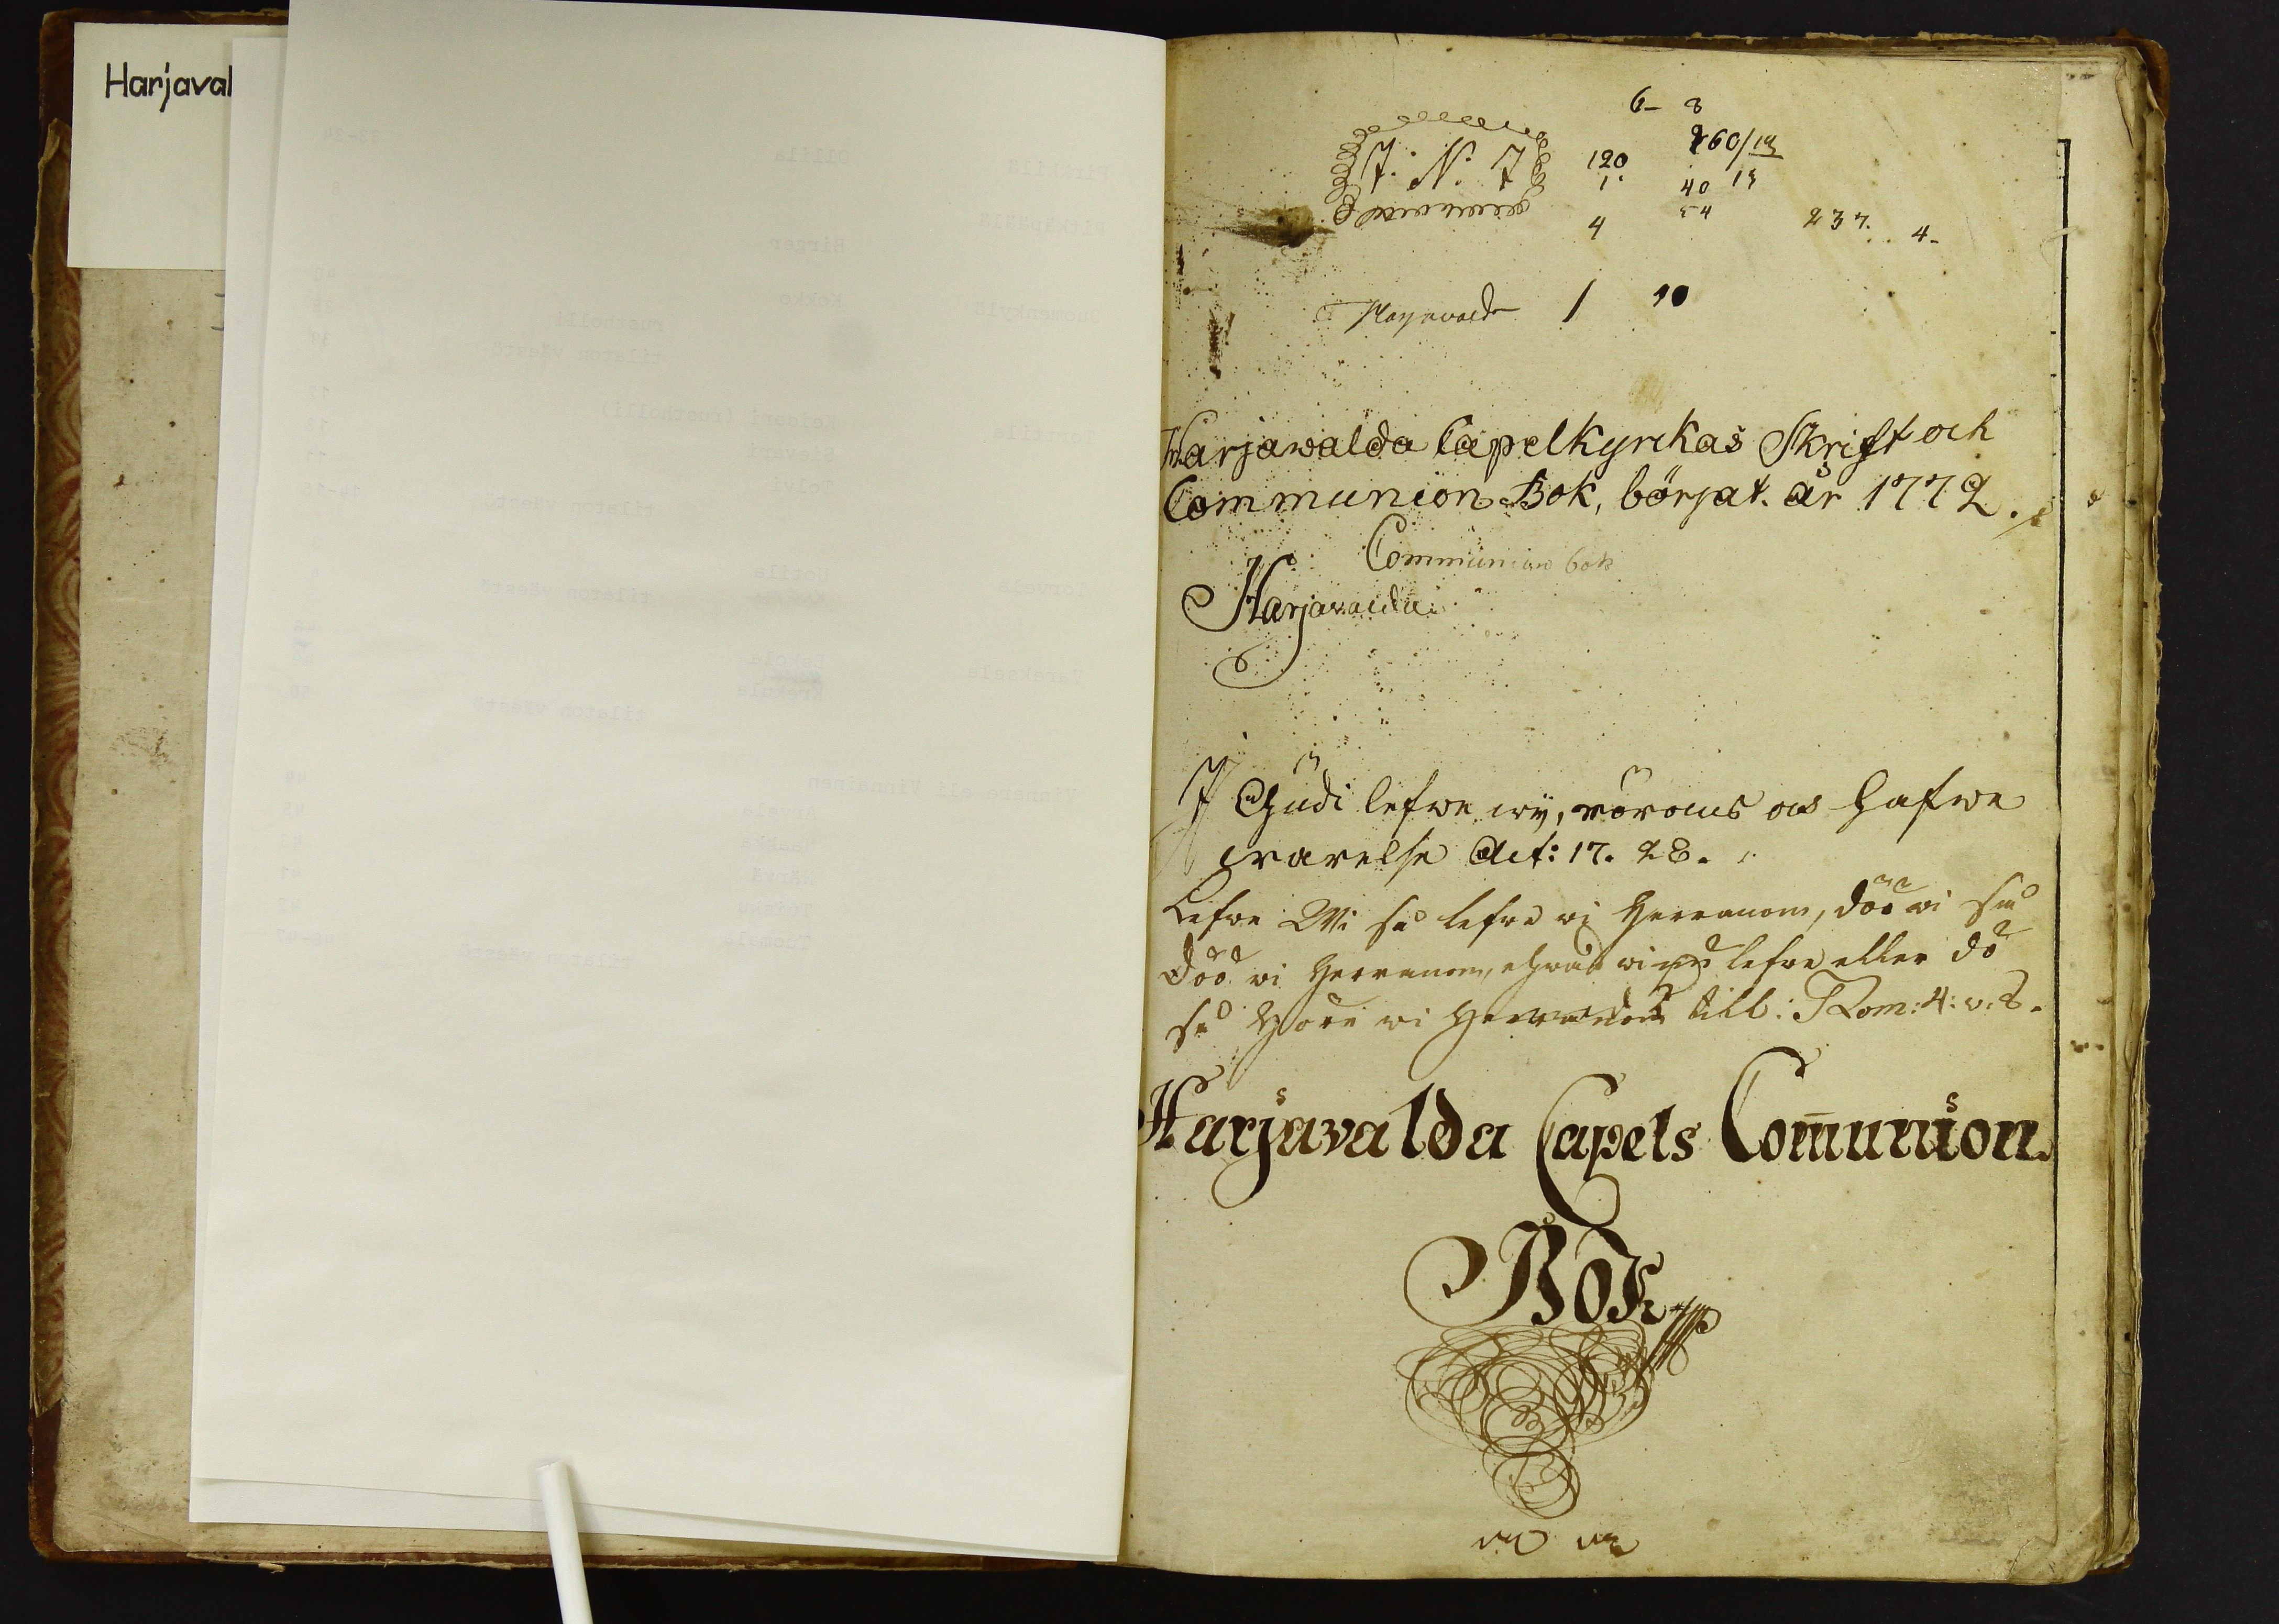 Harjaval
6- 8
J. N. J
120
260/13
1.
40 13
4
54
237. 4-
Harjavalda 1 10
Harjawalda Capelkyrkas Skrift och
Communion Bok, börjat år 1772.
Communion bok
Harjavalda
J Gudi lefwe wij, röroms och hafwe
warelse Act: 17. 28.
Lefwe Wi så lefwe wi Herranom, döö wi så
döö wi Herranom, ehwad wi nu lefwe eller dö
så höre wi Herranom till: Rom: 4: v. 8.
Harjavalda Capels Com̄union
Bok